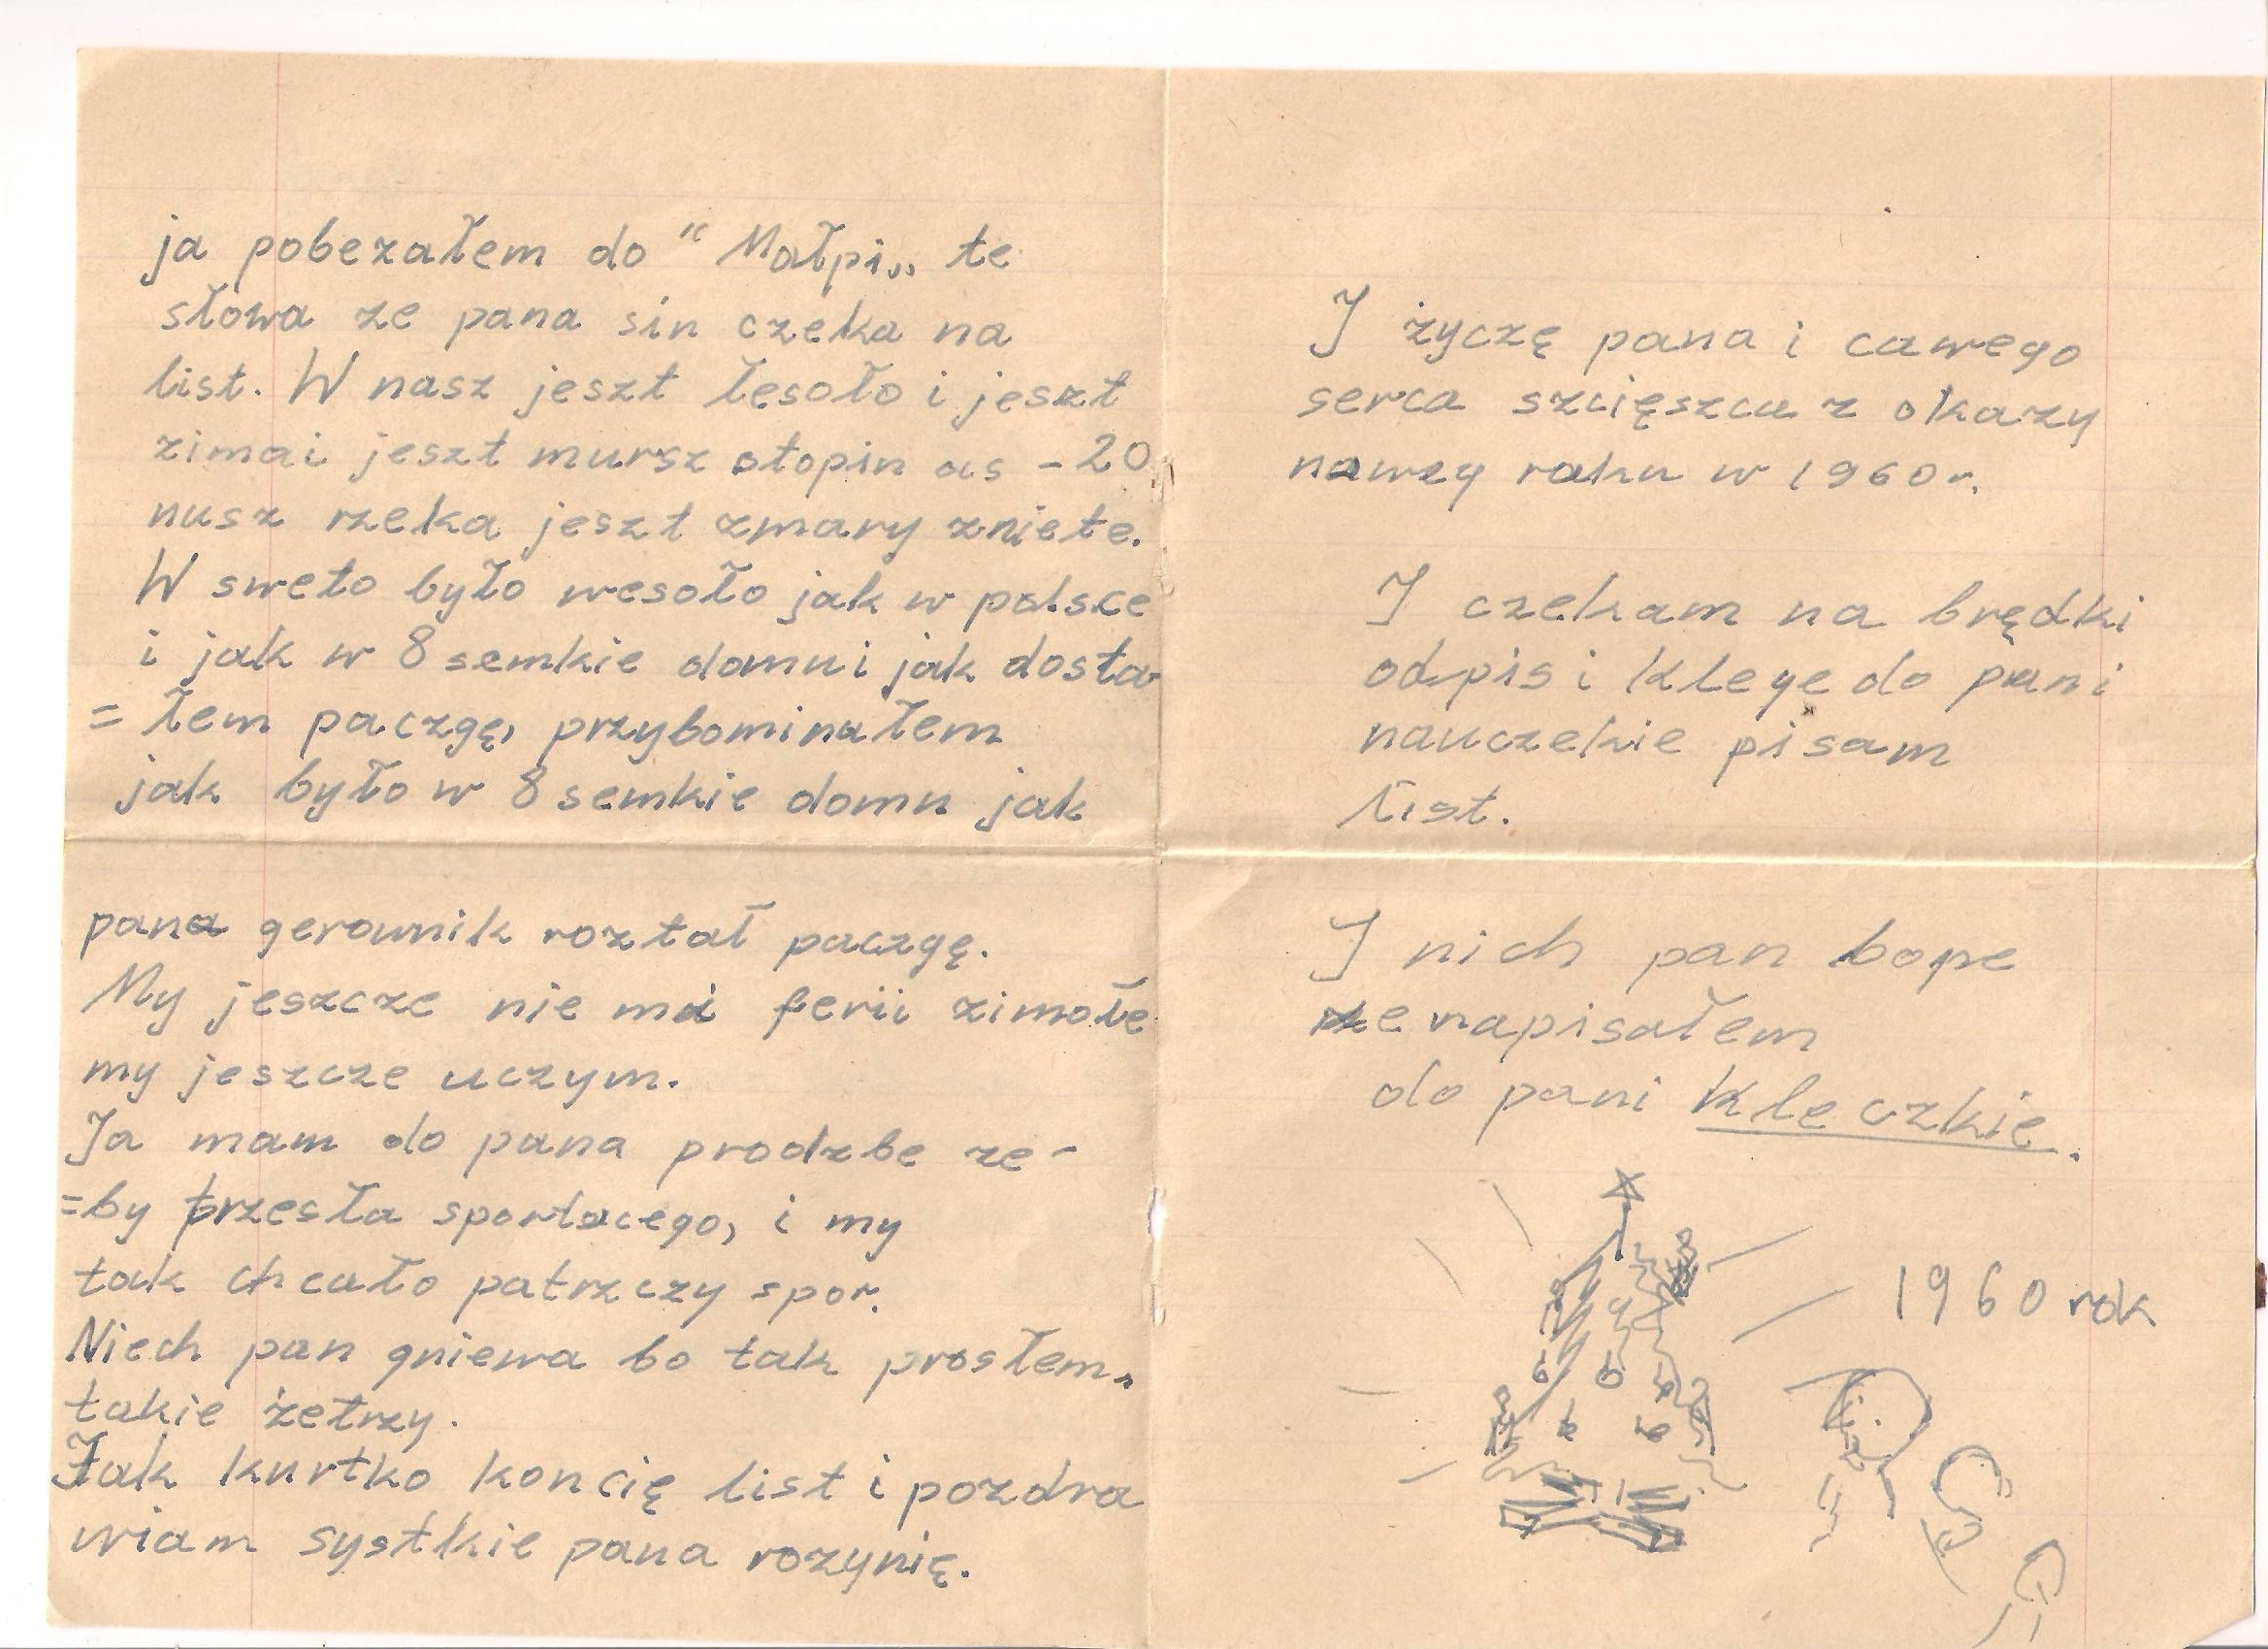 ja pobezałem do "Małpi„ te
słowa ze pana sin czeka na
list. W nasz jeszt łesoło i jeszt
zima i jeszt mursz stopin as -20
nusz rzeka jeszt zmary zniete.
W sweto było wesoło jak w polsce
i jak w 8 semkie domu i jak dosta
= łem paczgę, przybominałem
jak było w 8 semkie domu jak
pana gerownik roztał paczgę.
My jeszcze nie ma ferii zimołe
my jeszcze uczym.
Ja mam do pana prodzbe ze-
=by przesła sportacego, i my
tak chcało patrzczy spor.
Niech pan gniewa bo tak prosłem.
takie żetrzy.
Jak kurtko koncię list i pozdra
wiam systkie pana rozynię.
I życzę pana i cawego
serca szcięszcu z okazy
nawzy roku w 1960 r.
I czekam na brędki
odpis i klege do pani
nauczekie pisam
łist.
I nich pan bope
ze napisałem
do pani Kleczkie.
1960 rok